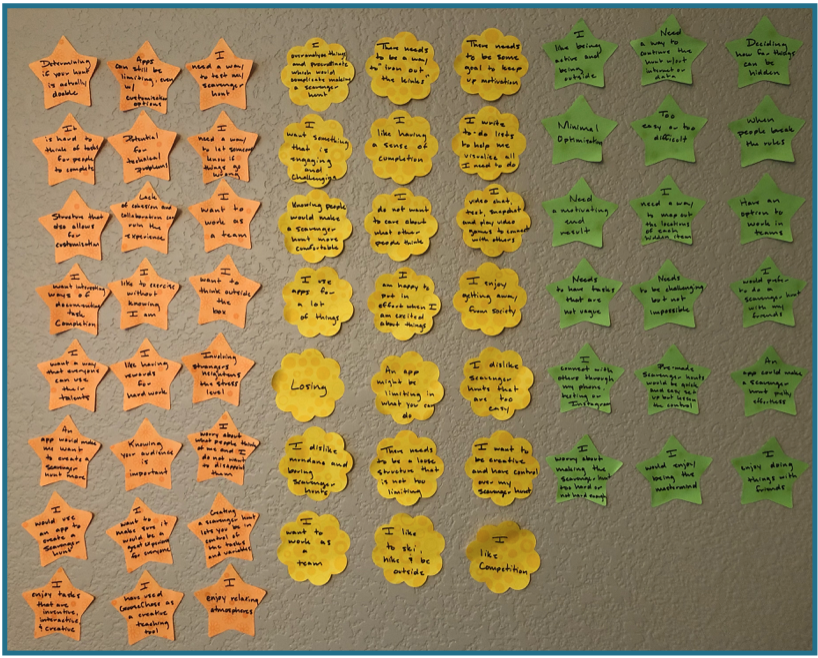 Determining
if your hunt
is actually
doable
Apps
can still be
limiting, even
w/
customization
options
I
need a way
to test my
scavenger
hunt
It
is hard to
think of tasks
for people
to complete
Potential
for
technical
problems!
I
need a way
to let someone
know if
things go
wrong
Structure that
also allows
for
customization
Lack
of cohesion and
collaboration can
ruin the
experience
I
want to
work as
a team
I
want interesting
ways of
documenting
task
completion
I
like to exercise
without
knowing
I am
I
want to
think outside
the
box
I
want a way
that everyone
can use
their
talents
I
like having
rewards
for
hard work
Involving
strangers
heightens
the stress
level
An
app would make
me want
to create a
scavenger
hunt more
Knowing
your audience
is
important
I
worry about
what people think
of me and I
do not want
to disappoint
them
I
would use
an app to
create a
scavenger
hunt
I
want to
make sure it
would be a
good experience
for everyone
Creating
a scavenger hunt
lets you be in
control of
the tasks
and variables
I
enjoy tasks
that are
inventive,
interactive,
& creative
I
have used
GooseChase as
a creative
teaching
tool
I
enjoy relaxing
atmospheres
I
overanalyze things
and procrastinate
which would
complicate making
a scavenger
hunt
There needs
to be a way
to "iron out
the kinks"
There needs
to be some
goal to keep
up motivation
I
want something
that is
engaging
and
challenging
I
like having
a sense of
completion
I write
to-do lists
to help me
visualize all
I need to do
Knowing people
would make
a scavenger
hunt more
comfortable
I
do not want
to care about
what other
people think
I
video chat,
text, snapchat
and play video
games to connect
with others
I use
apps for
a lot
of things
I
am happy to
put in
effort when I
am excited
about things
I enjoy
getting away
from society
Losing
An app
might be
limiting in
what you can
do
I dislike
scavenger
hunts that
are too
easy
I dislike
mundane and
boring
scavenger
hunts
There needs
to be a loose
structure that
is not too
limiting
I want to
be creative
and have control
over my
scavenger hunt
I
want to
work as
a
team
I like
to ski,
hike & be
outside
I
like
Competition
I
like being
active and
being
outside
Need
a way to
continue the
hunt w/out
internet or
data
Deciding
how far things
can be
hidden
Minimal
Optimizating
Too
easy or too
difficult
When
people break
the rules
Need
a motivating
end
result
I
need a way
to map out
the locations
of each
hidden item
Have an
option to
work in
teams
Needs
to have tasks
that are
not vague
Needs
to be challenging
but not
impossible
I
would prefer
to do a
scavenger hunt
with my
friends
I
connect with
others through
my phone
texting or
Instagram
Pre-made
scavenger hunts
would be quick
and easy set
up but lessen
the control
An
app could make
a scavenger
hunt pretty
effortless
I
worry about
making the
scavenger hunt
too hard or
not hard enough
I
would enjoy
being the
mastermind
I
enjoy doing
things with
friends